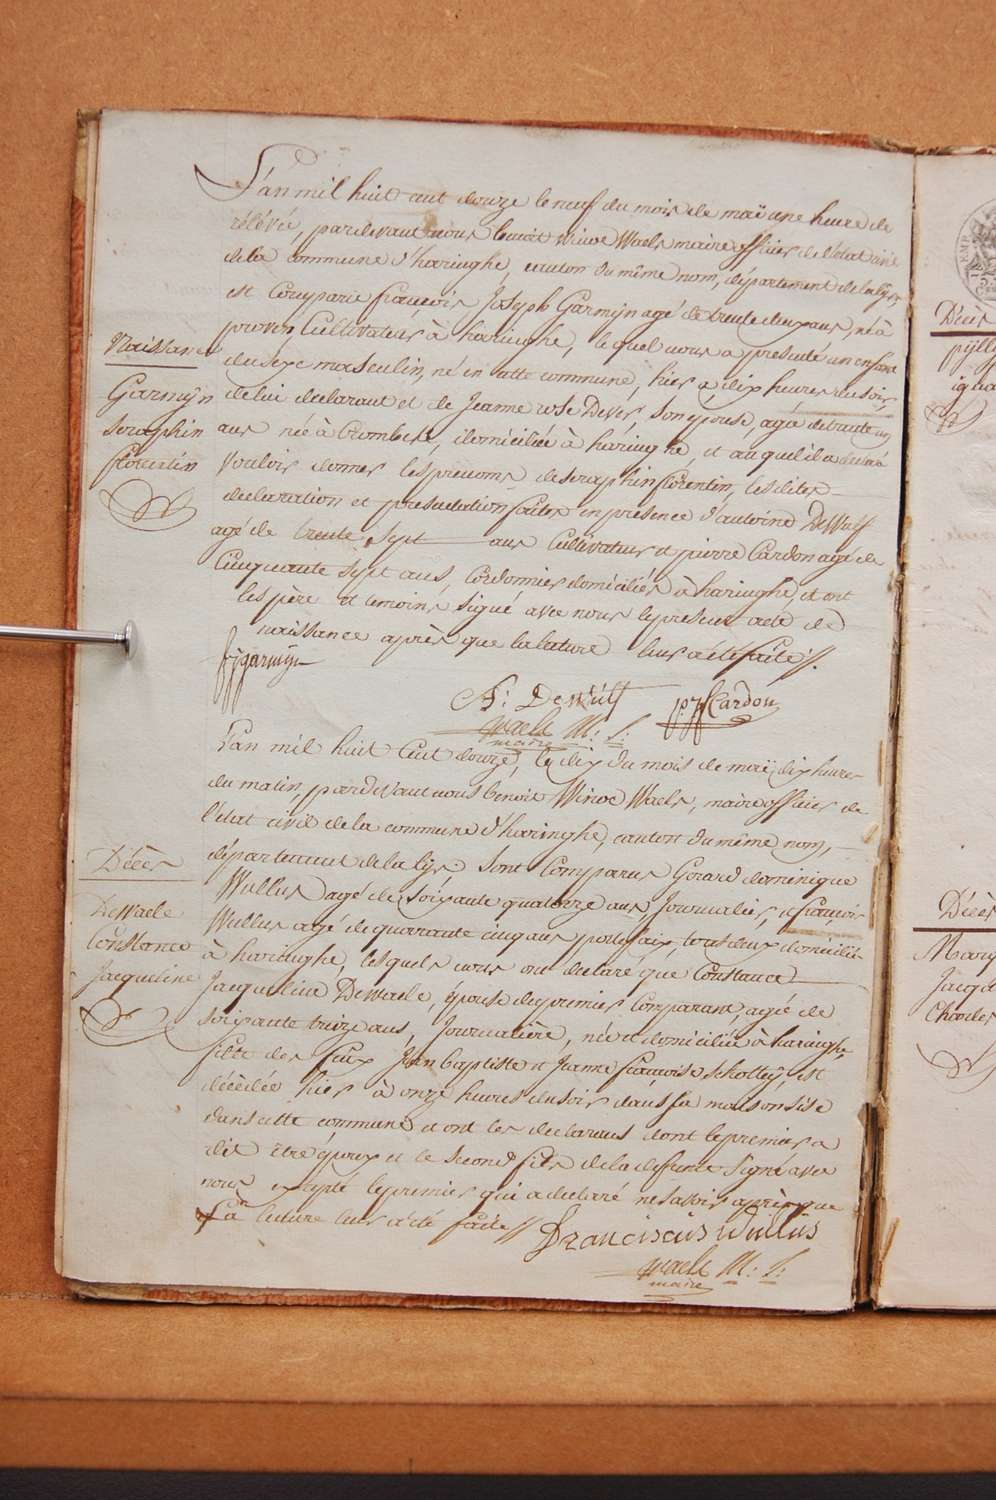 L'an mil huit cent douze le neuf du mois de maï une heure de
rélévée, pardevant nous benoit winoc Waels maire officier de l'etat civil
de la commune d'haringhe, canton du même nom, département de la lÿs,
est comparu françois Joseph Garmÿn agé de trente deux ans, né à
proven, Cultivateur à haringhe, le quel nous a presenté un enfant
du sexe masculin, né en cette commune, hier a dix heures du soir,
de lui declarant et de Jeanne rose Dever, son epouse, agée de trente un
ans née à Crombeke, domiciliée à haringhe, et au quel il a declaré
vouloir donner les prenoms de seraphin florentin, les dites
declaration et presentation faites en presence d'antoine DeWulf
agé de trente sept ans Cultivateur et pierre Cardon agé de
Cinquante sept ans, Cordonnier domiciliés à haringhe, et ont
les père et temoins signé avec nous le present acte de
naissance après que la lecture leur a été faite //.
Naissance
Garmÿn
Seraphin
florentin
fjgarmijn
A: DeWulf
p:j Cardon
Waels M: f:
maire
L'an mil huit Cent douze, le dix du mois de maï dix heures
du matin, pardevant nous benoit Winoc Waels, maire officier de
l'etat civil de la commune d'haringhe, canton du même nom,
département de la lÿs. Sont Comparus Gerard dominique
Wullus agé de soixante quatorze ans Journalier, et françois
Wullus agé de quarante cinq ans portefaix, tous deux domiciliés
à haringhe, lesquels nous ont declaré que Constance
Jacqueline DeWaele, épouse du premier Comparant, agée de
soixante treize ans, Journalière, née et domiciliée à haringhe
fille des feux Jean baptiste et Jeanne françoise scholteÿ, est
décédée hier à onze heures du soir dans sa maison sise
dans cette commune et ont les declarans dont le premier a
dit être époux et le second fils de la defunte signé avec
nous excepté le premier qui a declaré ne savoir après que
la lecture leur a été faite //
Décès
DeWaele
Constance
Jacqueline
Franciscus Wullus
Waels M: f:
maire
Décès
Décès
Jacqu
Charles